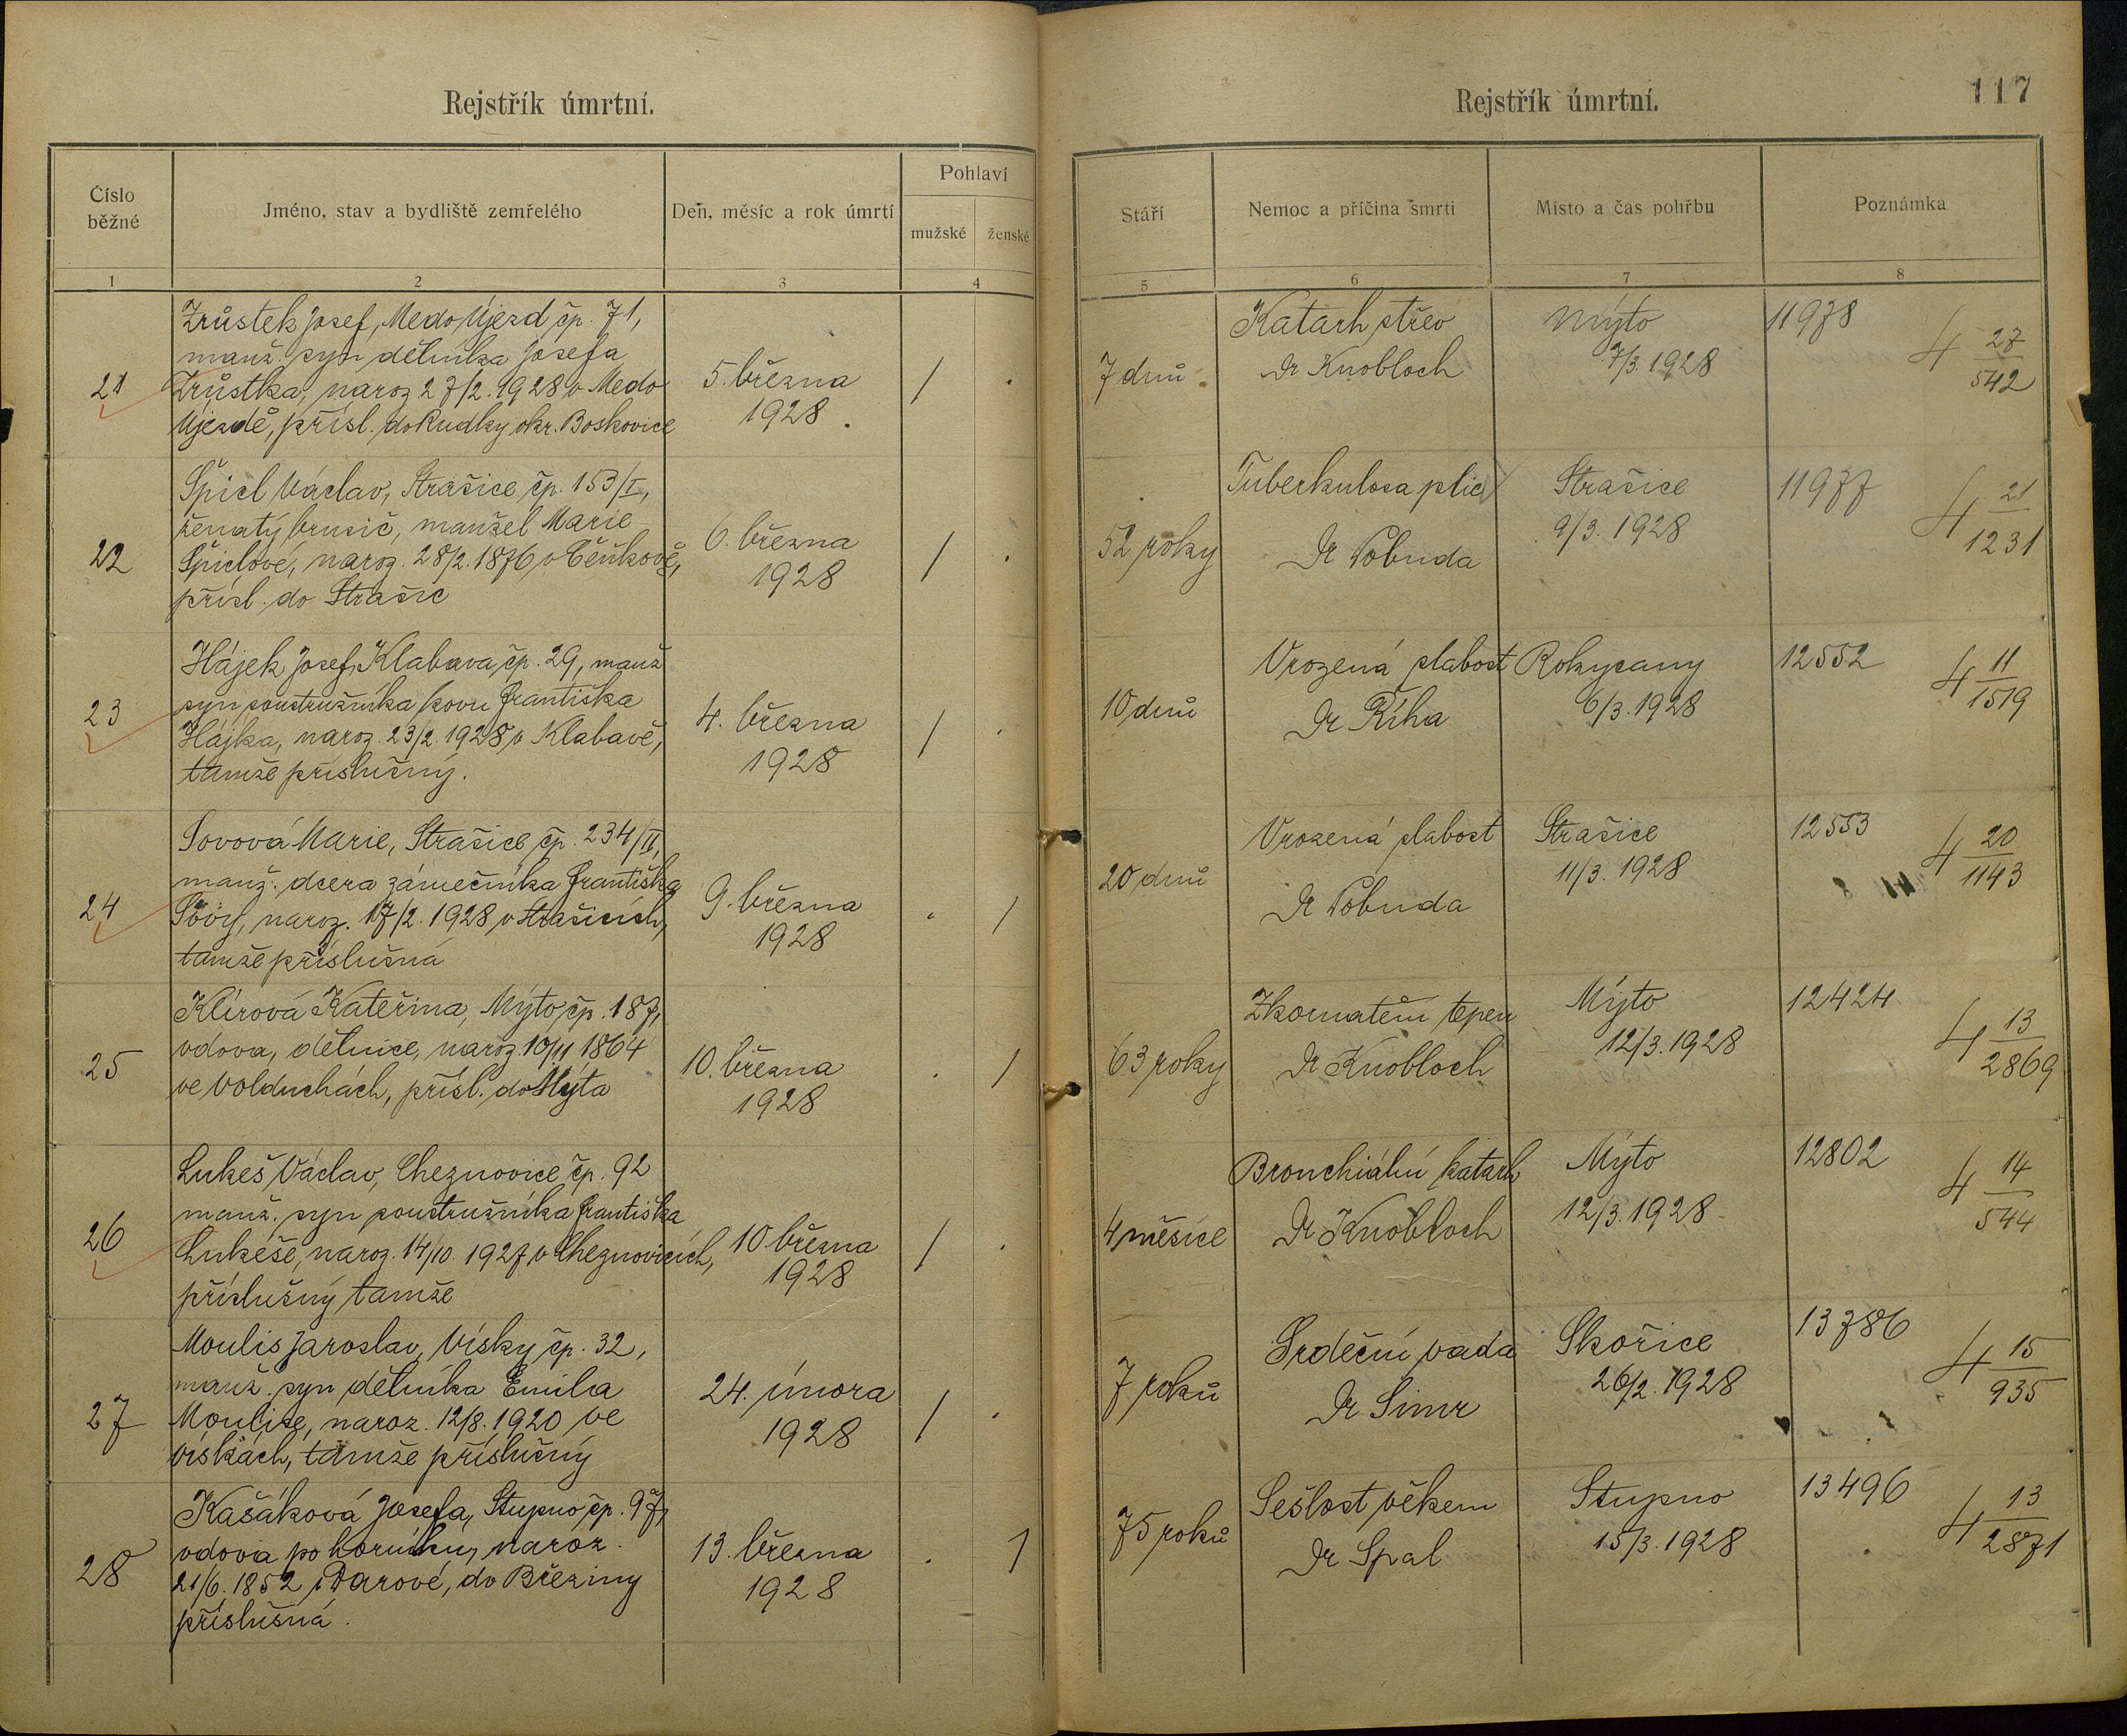 Rejstřík úmrtní.
Číslo běžné
Jméno, stav a bydliště zemřelého
Den, měsíc a rok úmrtí
Pohlaví
mužské ženské
1 2 3 4
21
Zrůstek Josef, Medo Újezd čp. 71,
manž. syn dělníka Josefa
Zrůstka, naroz 27/2. 1928 v Medo
Újezdě, přísl. do Rudky okr. Boskovice
5. března
1928.
/ .
22
Špicl Václav, Strašice čp. 153/I,
ženatý brusič, manžel Marie
Špiclové, naroz. 28/2. 1876 v Čeňkově,
přísl. do Strašic
6. března
1928
/ .
23
Hájek Josef, Klabava čp. 29, manž
syn soustružníka kovu Františka
Hájka, naroz. 23/2. 1928 v Klabavě,
tamže příslušný.
4. března
1928
/ .
24
Sovová Marie, Strašice čp. 234/II,
manž. dcera zámečníka Františka
Sovy, naroz. 17/2. 1928 v Strašicích,
tamže příslušná
9. března
1928
. /
25
Klírová Kateřina, Mýto čp. 187,
vdova, dělnice, naroz 10/11 1864
ve Volduchách, přísl. do Mýta
10. března
1928
. /
26
Lukeš Václav, Cheznovice čp. 92
manž. syn soustružníka Františka
Lukeše, naroz. 14/10. 1927 v Cheznovicích,
příslušný tamže
10 března
1928
/ .
27
Moulis Jaroslav, Vísky čp. 32,
manž. syn dělníka Emila
Moulise, naroz. 12/8. 1920 ve
Vískách, tamže příslušný
24. února
1928
/ .
28
Kašáková Josefa, Stupno čp. 97,
vdova po horníku, naroz.
21/6. 1852 v Darové, do Březiny
příslušná.
13. března
1928
. 1
Rejstřík úmrtní.
117
Stáří
Nemoc a příčina smrti
Místo a čas pohřbu
Poznámka
5 6 7 8
7 dnů
Katarh střev
Dr Knobloch
Mýto
7/3. 1928
11978
4 27/542
52 roky
Tuberkulosa plic
Dr Pobuda
Strašice
9/3. 1928
11977
4 21/1231
10 dnů
Vrozená slabost
Dr Říha
Rokycany
6/3. 1928
12552
4 11/1519
20 dnů
Vrozená slabost
Dr Pobuda
Strašice
11/3. 1928
12553
4 20/1143
63 roky
Zkornatění tepen
Dr Knobloch
Mýto
12/3. 1928
12424
4 13/2869
4 měsíce
Bronchiální katarh
Dr Knobloch
Mýto
12/3. 1928
12802
4 14/544
7 roků
Srdeční vada
Dr Simr
Skořice
26/2. 1928
13786
4 15/935
75 roků
Sešlost věkem
Dr Spal
Stupno
15/3. 1928
13496
4 13/2871